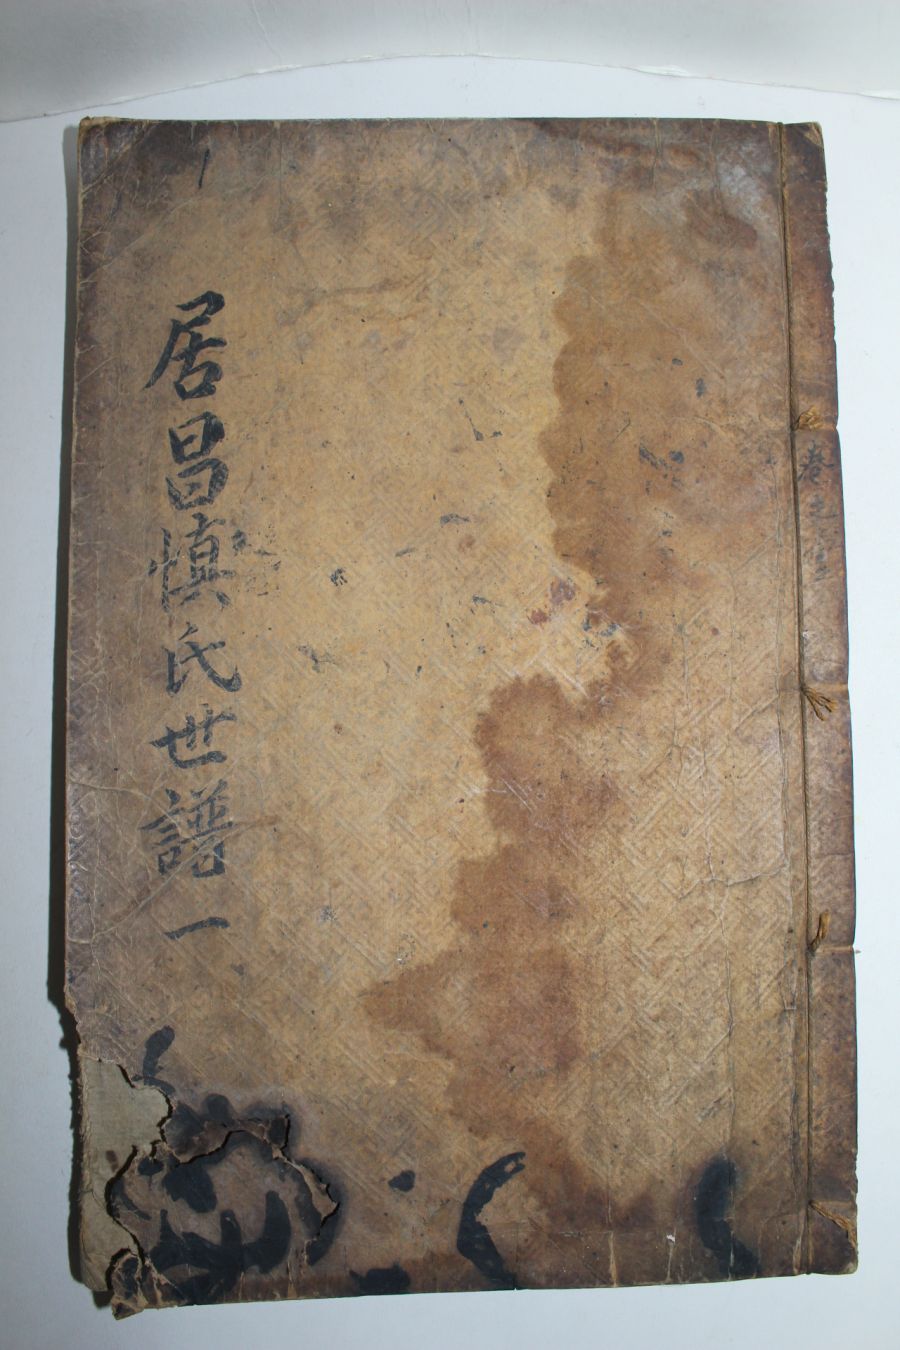 卷之
居昌愼氏世譜 一